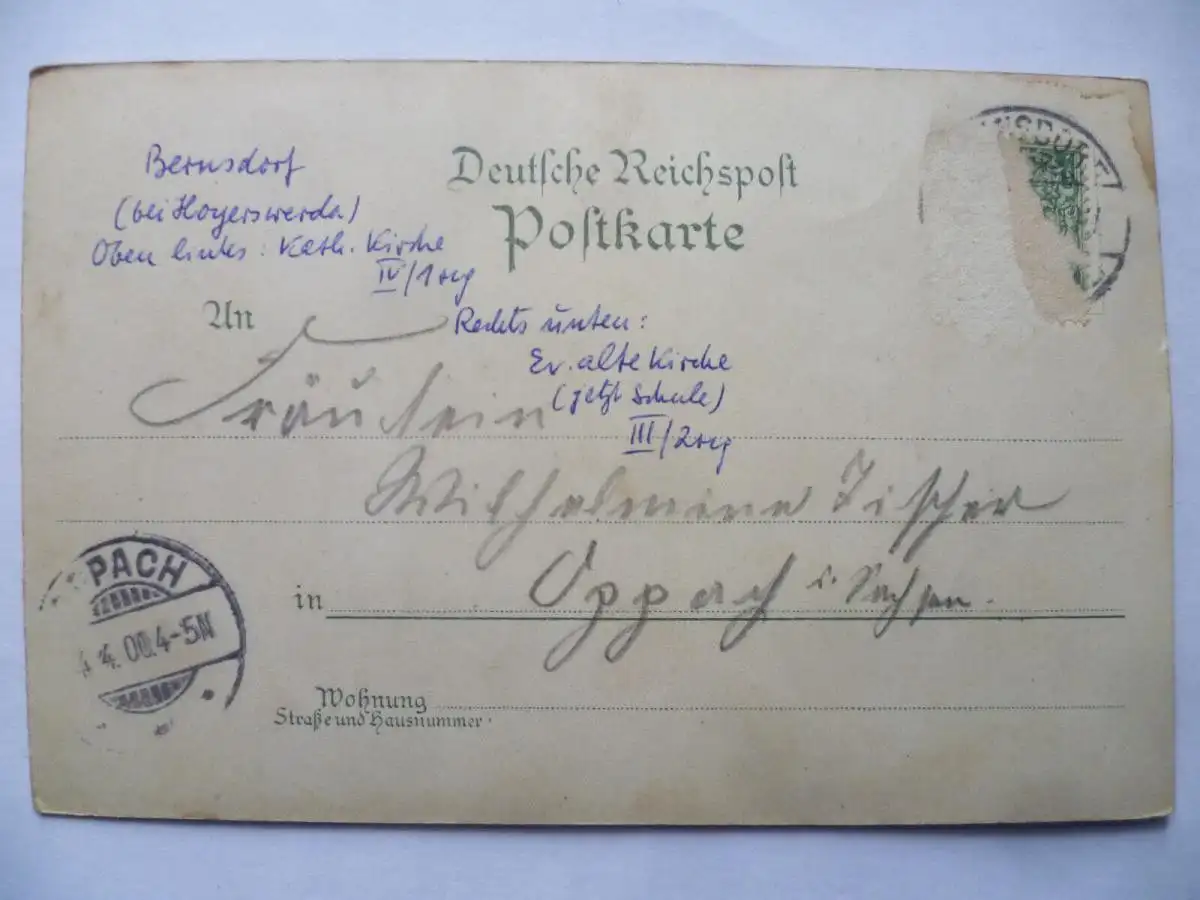 Bernsdorf
(bei Hoyerswerda)
Oben links: Kath. Kirche
IV/1
Deutsche Reichspost
Postkarte
NSDORF
An
Rechts unten:
Ev. alte Kirche
(jetzt Schule)
III/2
Fräulein
Wilhelmine Tischer
in Oppach i. Sachsen.
PPACH
4. 00. 4-5N
Wohnung
Straße und Hausnummer